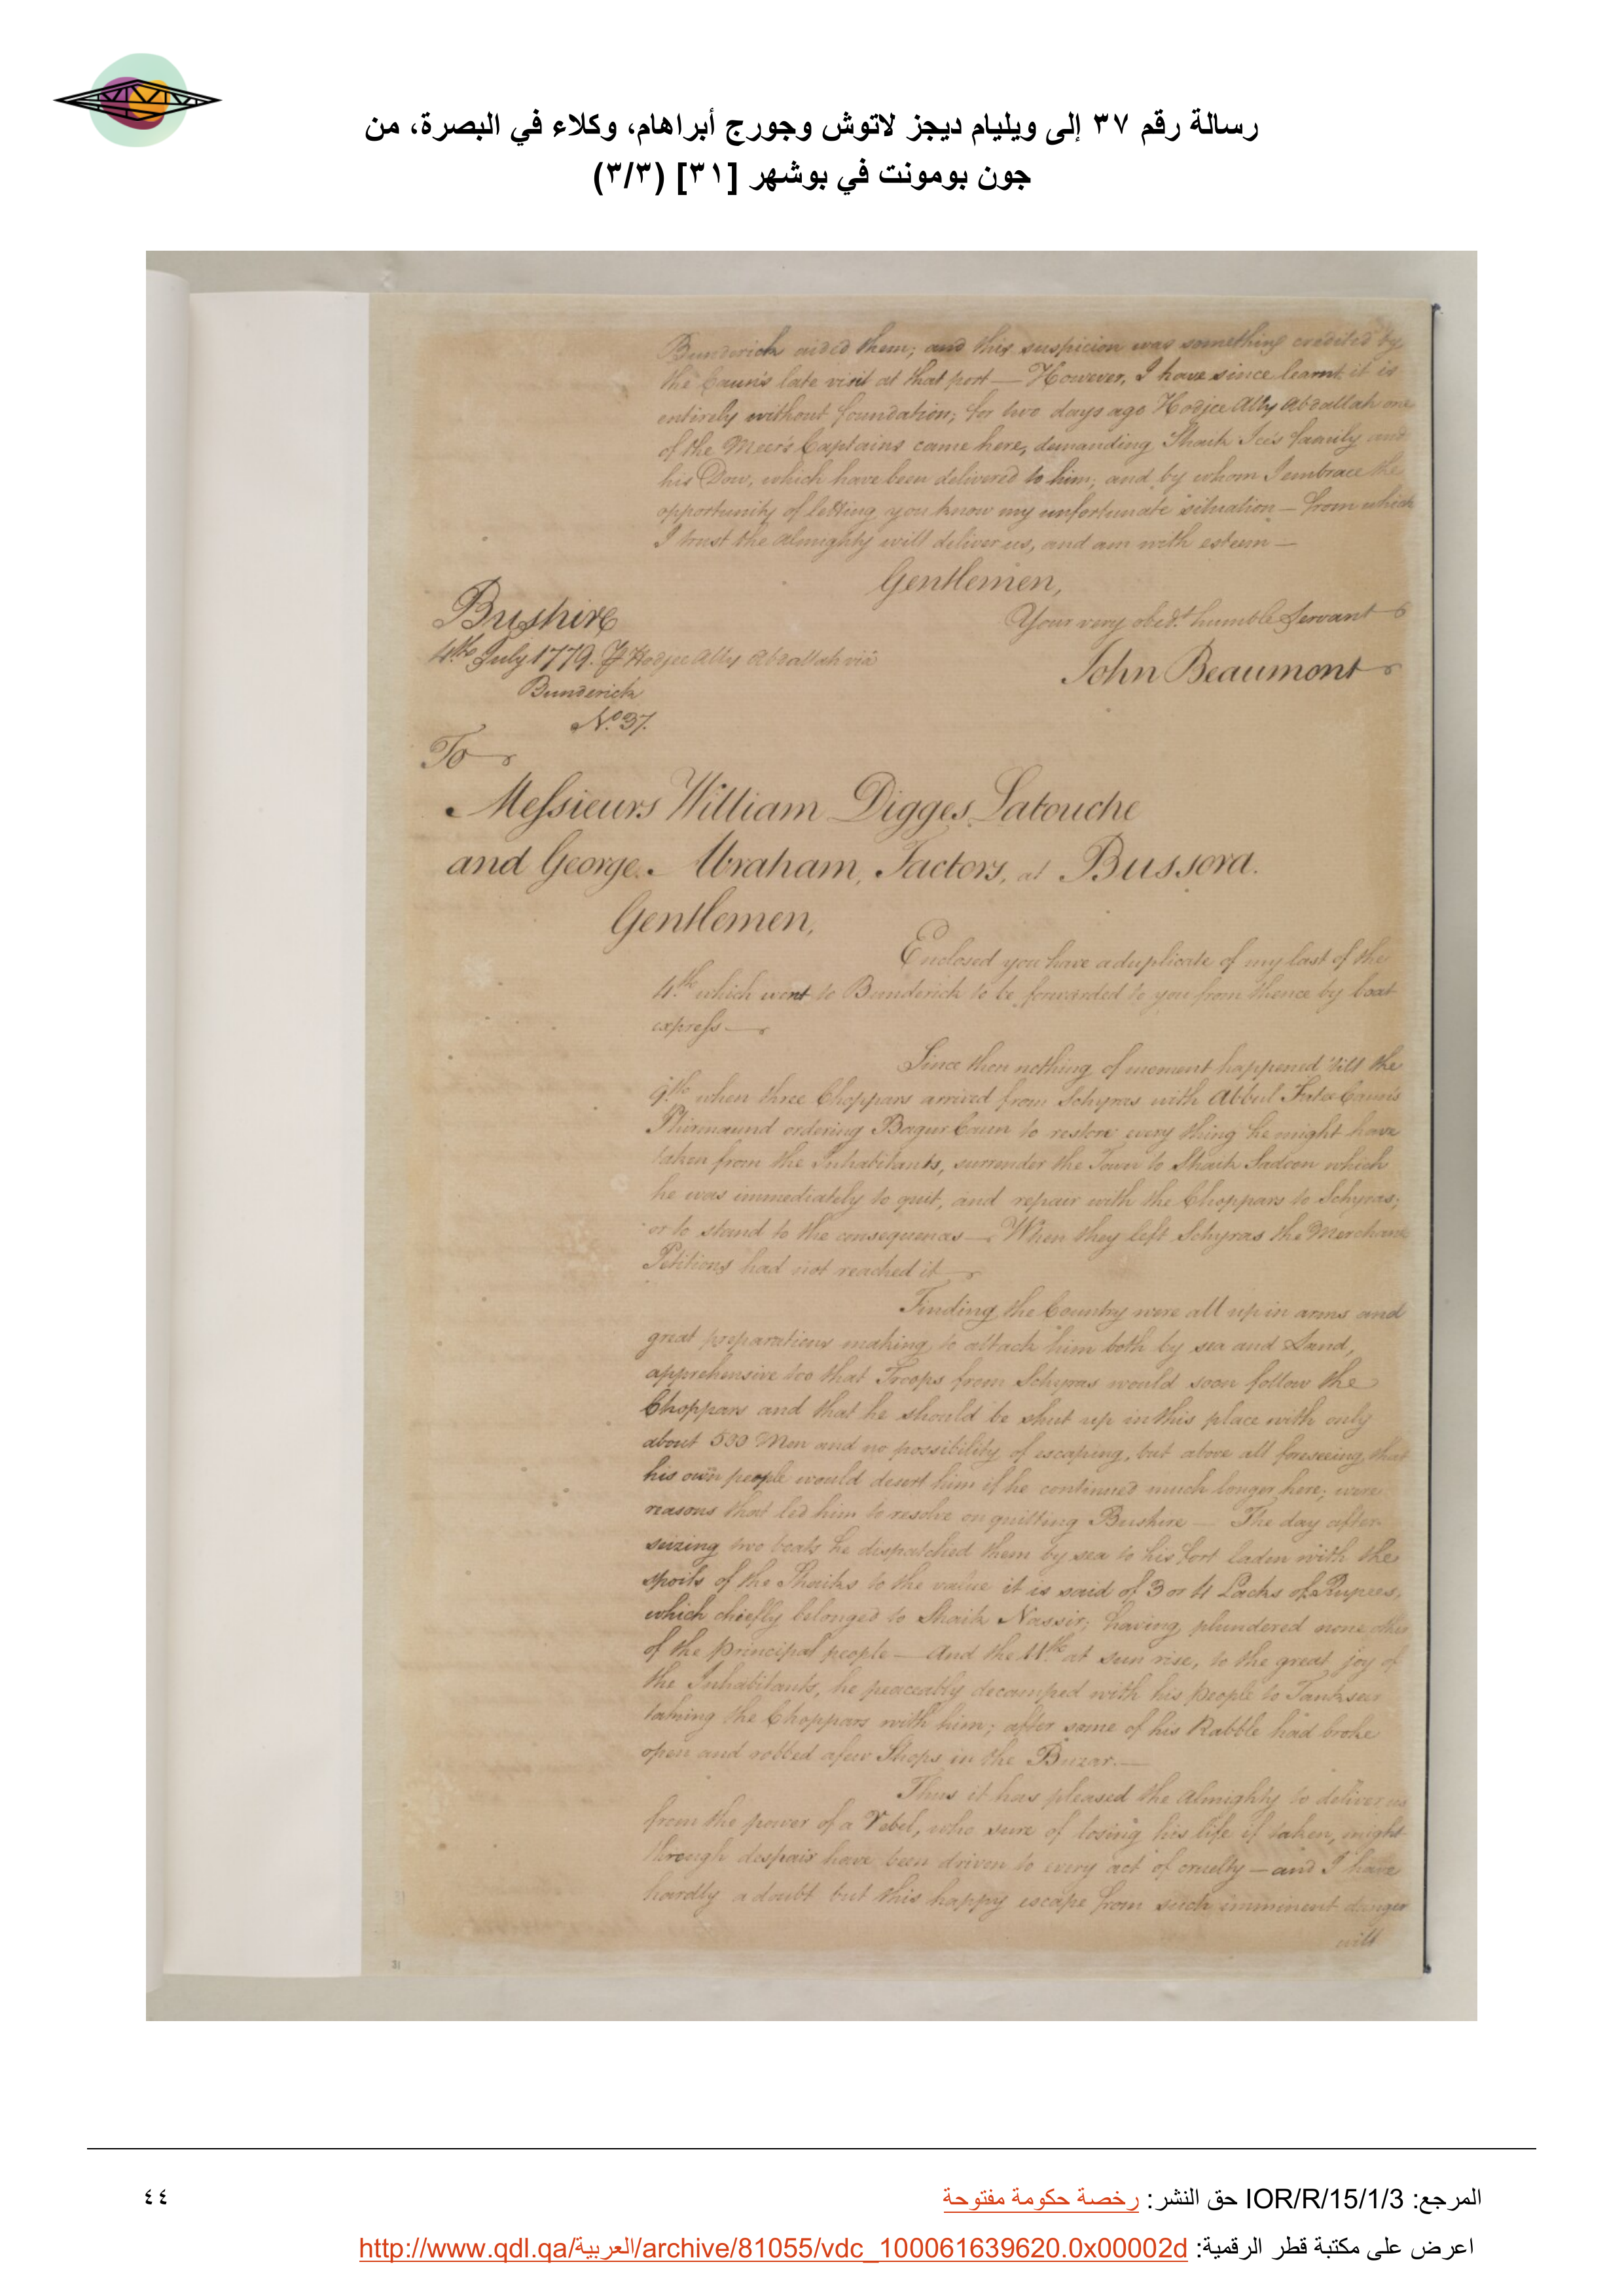 رسالة رقم ٣٧ إلى ويليام ديجز لاتوش وجورج أبراهام، وكلاء في البصرة، من
جون بومونت في بوشهر [٣١] (٣/٣)
Bunderick aided them; and this suspicion was something credited by
the Caun's late visit at that port — However, I have since learnt it is
entirely without foundation; for two days ago Hodjee Ally Abdallah one
of the Meer's Captains came here, demanding Shaik Ice's family and
his Dow, which have been delivered to him; and by whom I embrace the
opportunity of letting you know my unfortunate situation — from which
I trust the Almighty will deliver us, and am with esteem —
Gentlemen,
Your very obed.t humble Servant
Bushire
4th July 1779. Hodjee Ally Abdallah via
John Beaumont
Bunderick
No. 37.
To
Messieurs William Digges Latouche
and George Abraham, Factors, at Bussora.
Gentlemen,
Enclosed you have a duplicate of my last of the
4.th which went to Bunderick to be forwarded to you from thence by boat
express —
Since then nothing of moment happened 'till the
9.th when three Choppars arrived from Schyras with Abbul Futee Caun's
Phirmaund ordering Bagur Caun to restore every thing he might have
taken from the Inhabitants, surrender the Town to Shaik Sadoon which
he was immediately to quit, and repair with the Choppars to Schyras;
or to stand to the consequences — When they left Schyras the Merchants
Petitions had not reached it —
Finding the Country were all up in arms and
great preparations making to attack him both by sea and Land,
apprehensive too that Troops from Schyras would soon follow the
Choppars and that he should be shut up in this place with only
about 500 Men and no possibility of escaping, but above all foreseeing that
his own people would desert him if he continued much longer here; were
reasons that led him to resolve on quitting Bushire — The day after
seizing two boats he dispatched them by sea to his Fort laden with the
spoils of the Shaiks to the value it is said of 3 or 4 Lacks of Rupees,
which chiefly belonged to Shaik Nassir; having plundered none other
of the principal people — And the 11.th at sun rise, to the great joy of
the Inhabitants, he peaceably decamped with his people to Tankseer
taking the Choppars with him; after some of his Rabble had broke
open and robbed a few Shops in the Buzar. —
Thus it has pleased the Almighty to deliver us
from the power of a Rebel, who sure of losing his life if taken, might
through despair have been driven to every act of cruelty — and I have
hardly a doubt but this happy escape from such imminent danger
will
31
المرجع: IOR/R/15/1/3 حق النشر: رخصة حكومة مفتوحة
٤٤
اعرض على مكتبة قطر الرقمية: http://www.qdl.qa/العربية/archive/81055/vdc_100061639620.0x00002d